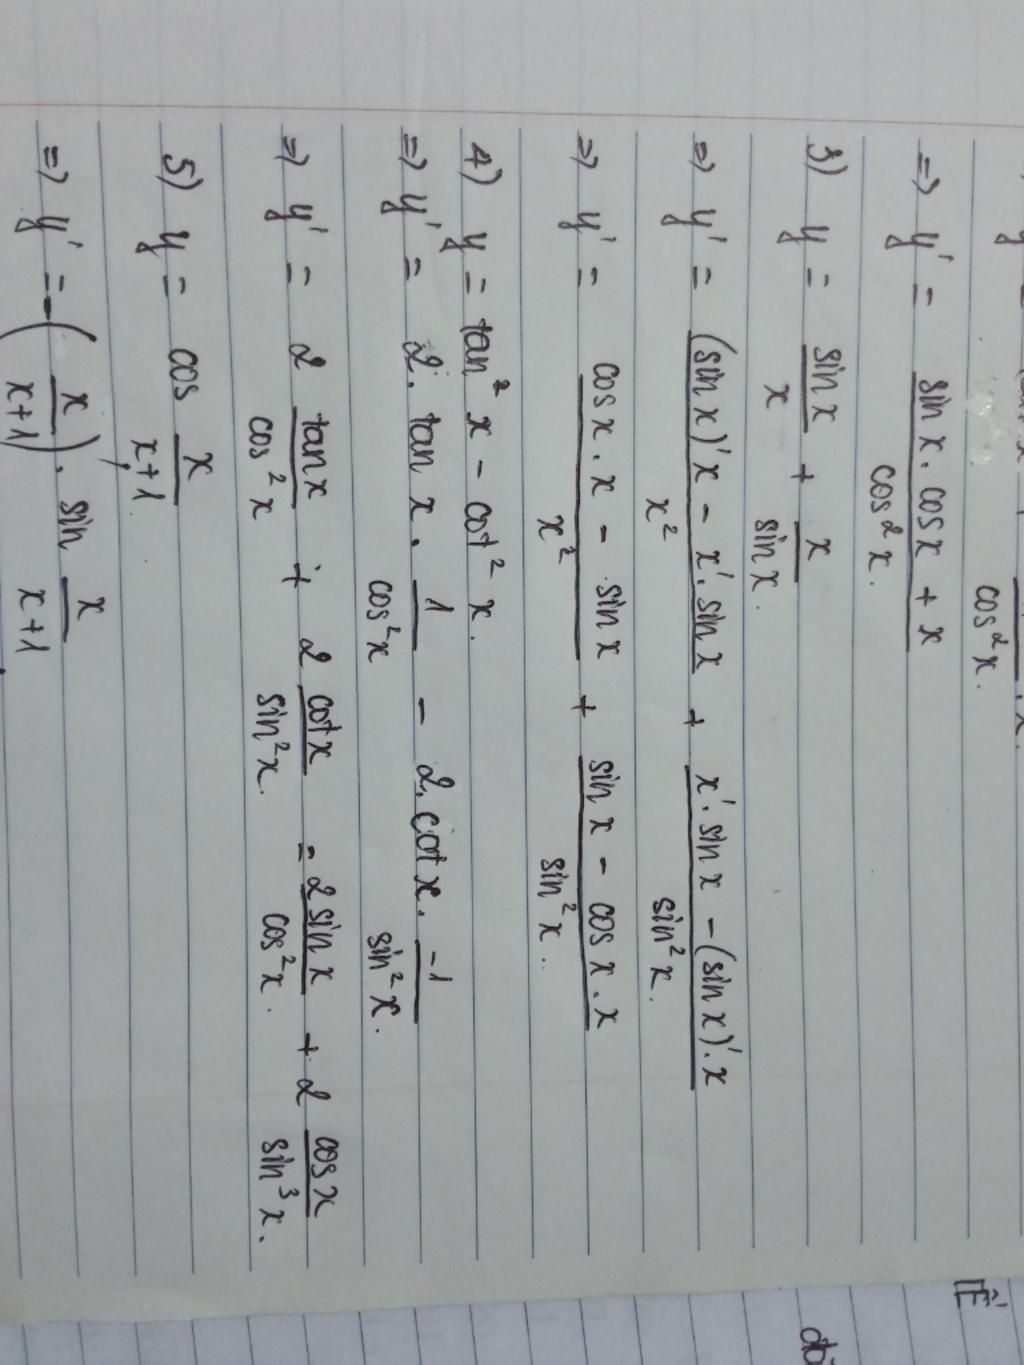 cos²x.
=> y' = (sin x . cos x + x)/(cos²x).
3) y = (sin x)/x + x/(sin x).
=> y' = ((sin x)'x - x'. sin x)/(x²) + (x'. sin x - (sin x)'. x)/(sin²x).
=> y' = (cos x . x - sin x)/(x²) + (sin x - cos x . x)/(sin²x)..
4) y = tan²x - cot²x.
=> y' = 2. tan x . 1/(cos²x) - 2. cot x . (-1)/(sin²x).
=> y' = 2 (tan x)/(cos²x) + 2 (cot x)/(sin²x). = (2 sin x)/(cos²x). + 2 (cos x)/(sin³x).
5) y = cos x/(x+1)
=> y' = -(x/(x+1))'. sin x/(x+1)